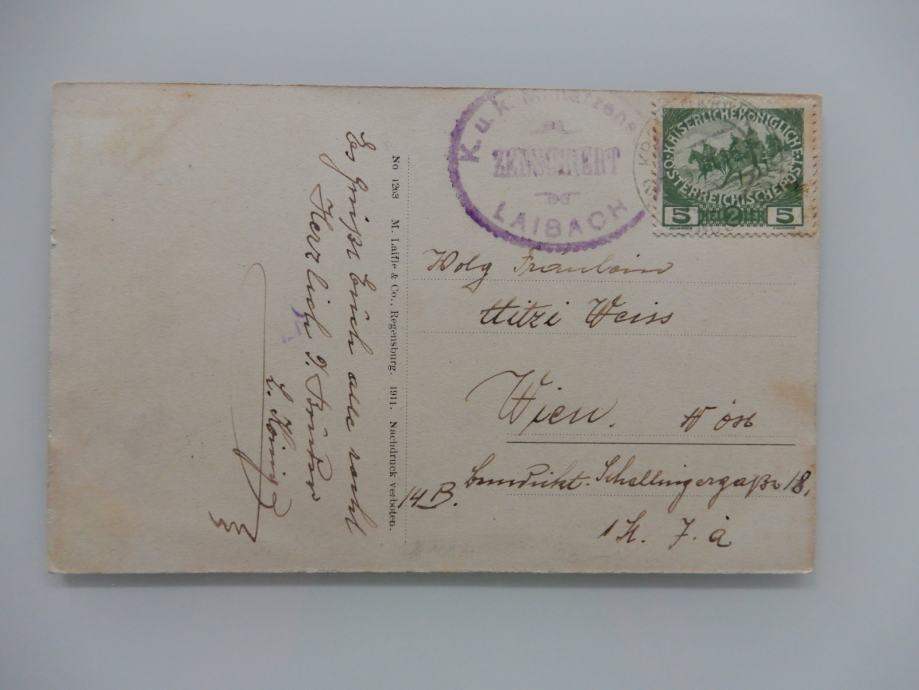 K. u. k. Militärzens
ZENSURIERT
LAIBACH
KAISERLICHE KÖNIGLICHE
ÖSTERREICHISCHE POST
5 2 5
Es grüßt Euch alle recht
Herzlich
L. König
No 1203 M. Laifle & Co., Regensburg. 1911. Nachdruck verboten.
Wolg Fräulein
Mitzi Weiss
Wien.
14 B. Benedikt-Schellingergaße 18,
1 St.